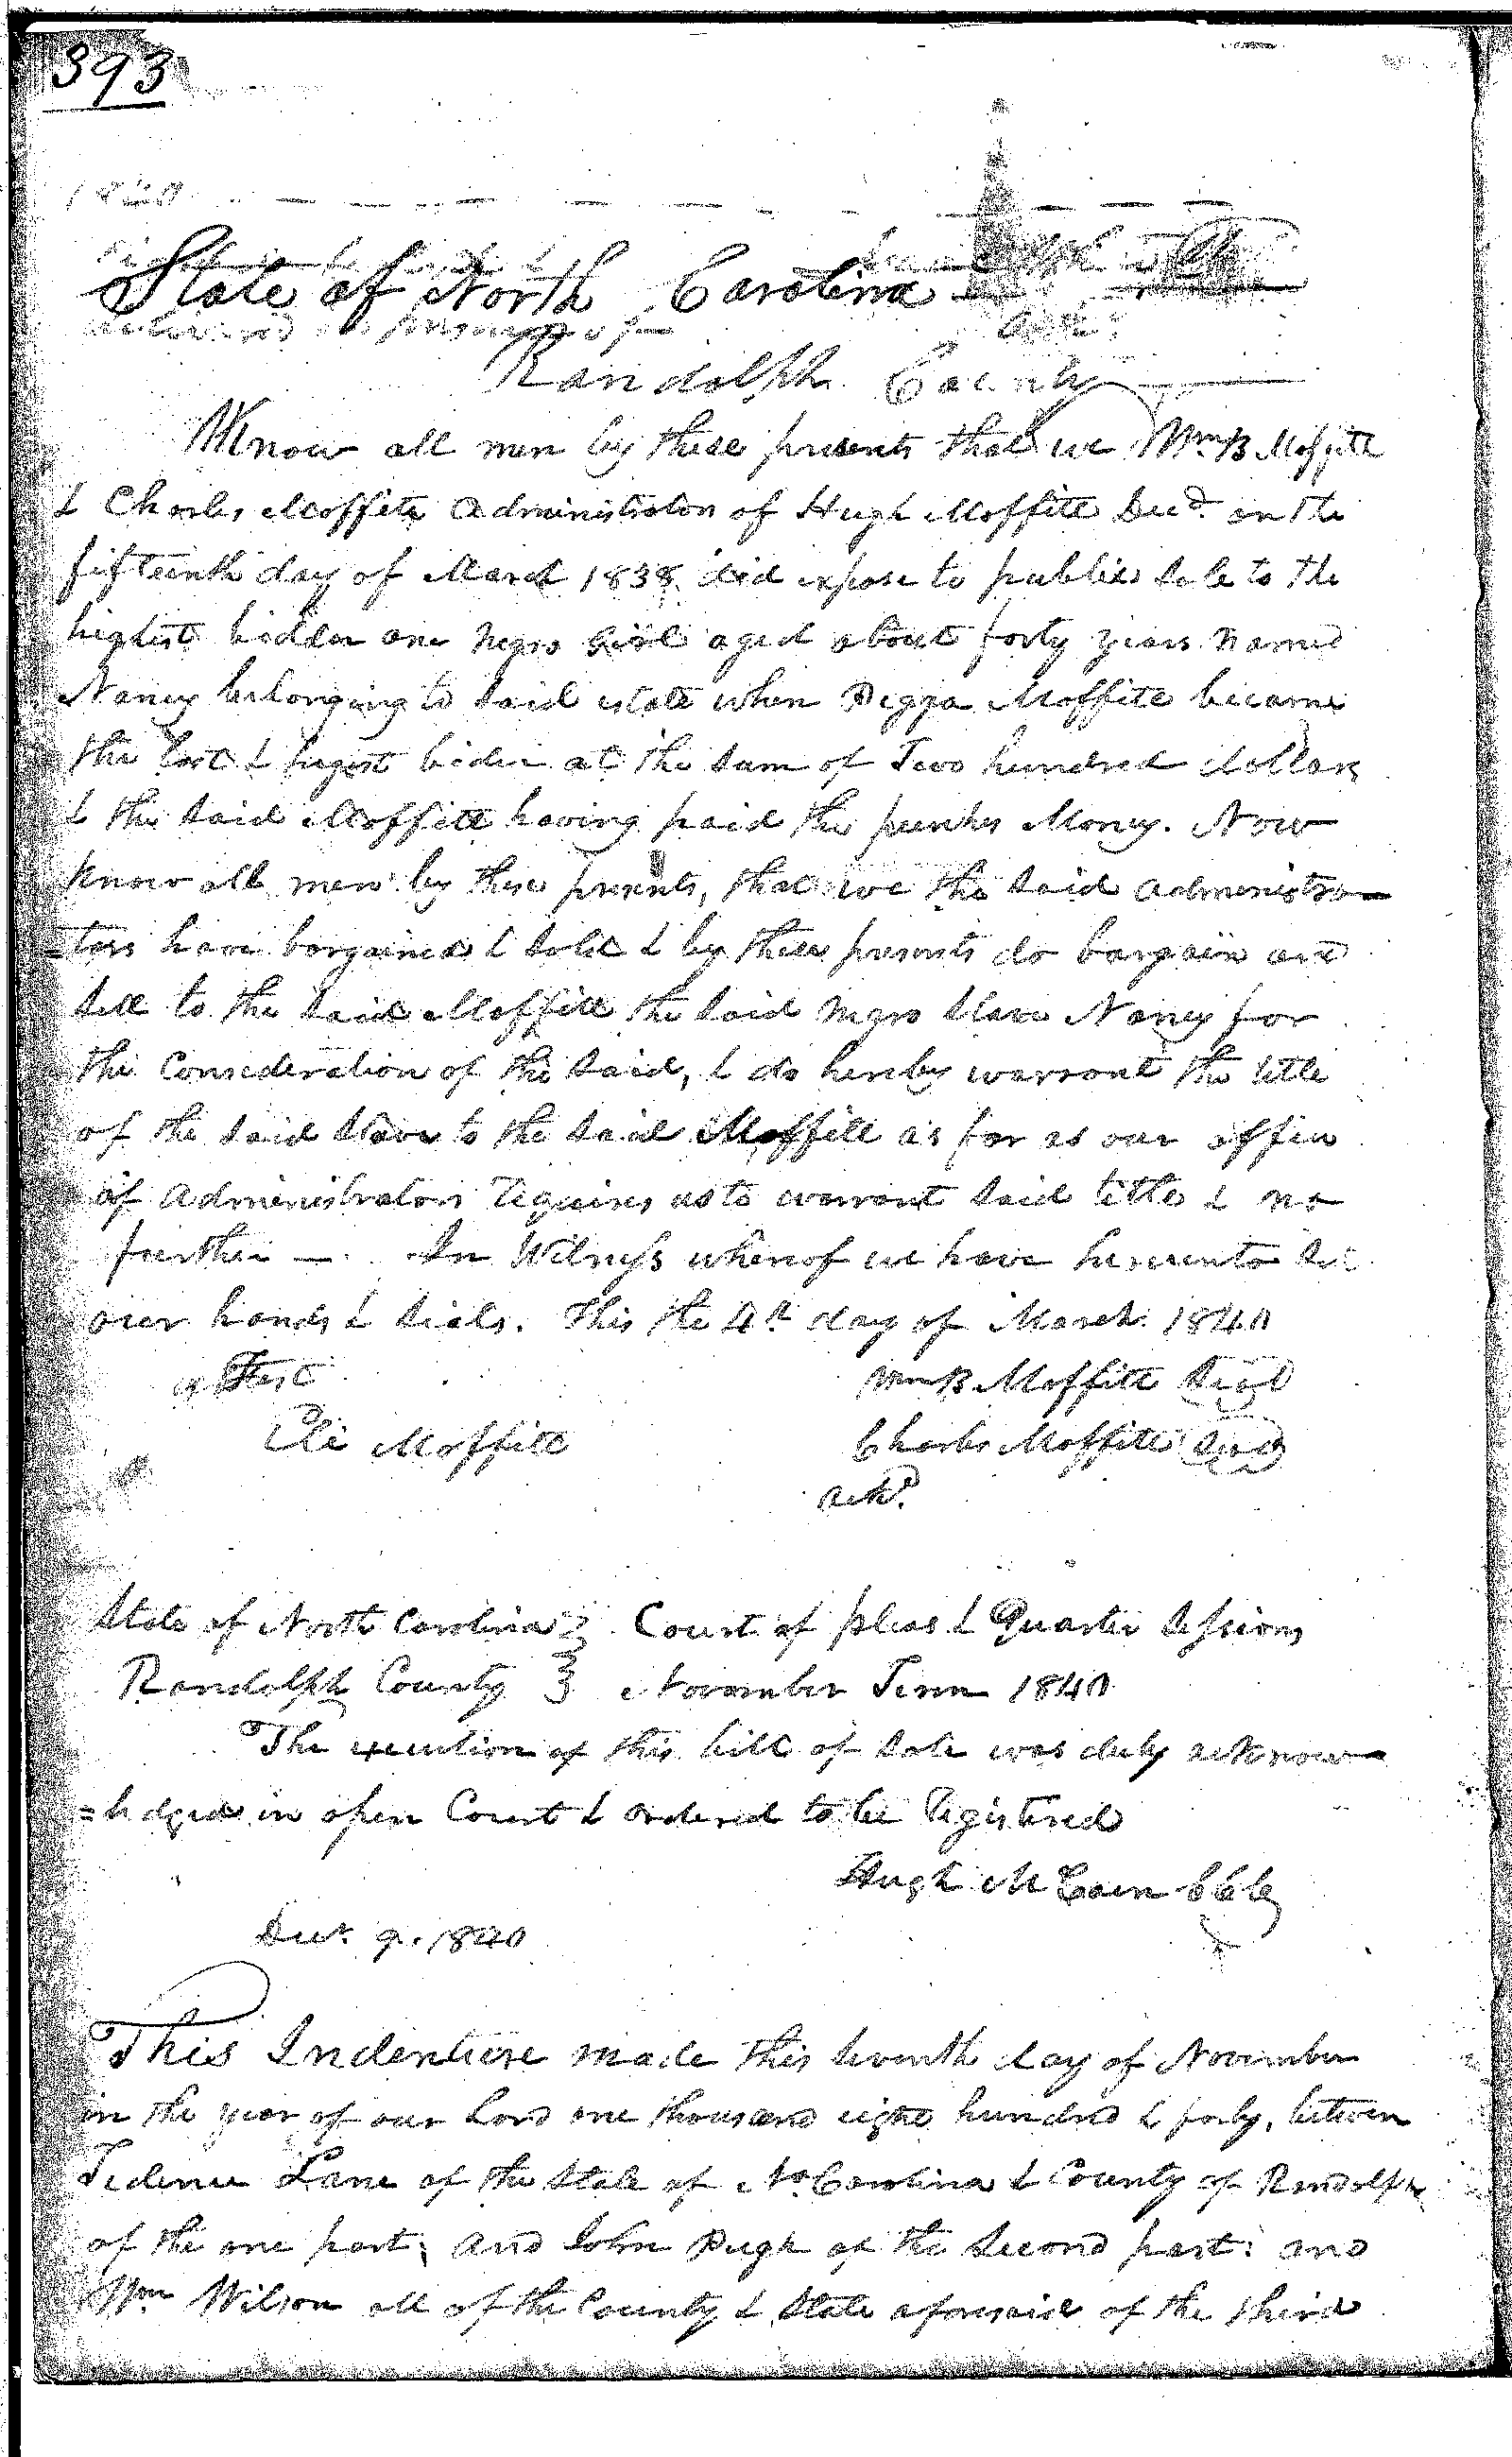 393
State of North Carolina
Randolph County
Know all men by these presents that we Wm B Moffitt
& Charles Moffitt Administrators of Hugh Moffitt Decd. on the
fifteenth day of March 1838 did expose to public sale to the
highest bidder one negro girl aged about forty years named
Nancy belonging to said estate when Moffitt became
the last & higest bider at the sum of Two hundred dollars
& the said Moffitt having paid the purches Money. Now
know all men by these presents, that we the said administra-
=tors have bargained & sold & by these presents do bargain and
sell to the said Moffitt the said negro slave Nancy for
the Consideration of the said, & do hereby warrant the title
of the said slave to the said Moffitt as far as our office
of Administrators requires us to warrant said title & no
further — In Witness whereof we have hereunto set
our hands & seals. This the 4th day of March 1840
Attest
Wm B Moffitt Seal
Eli Moffitt
Charles Moffitt Seal
ackd.
State of North Carolina } Court of pleas & Quarter Sessions
Randolph County } November Term 1840
The execution of this bill of sale was duly acknow-
=ledged in open Court & ordered to be registered
Hugh McCain Clk
Decr. 9. 1840
This Indenture made this seventh day of November
in the year of our Lord one thousand eight hundred & forty, between
Tidence Lane of the State of No. Carolina & County of Randolph
of the one part, and John Pugh of the second part: and
Wm Wilson all of the County & State aforesaid of the third